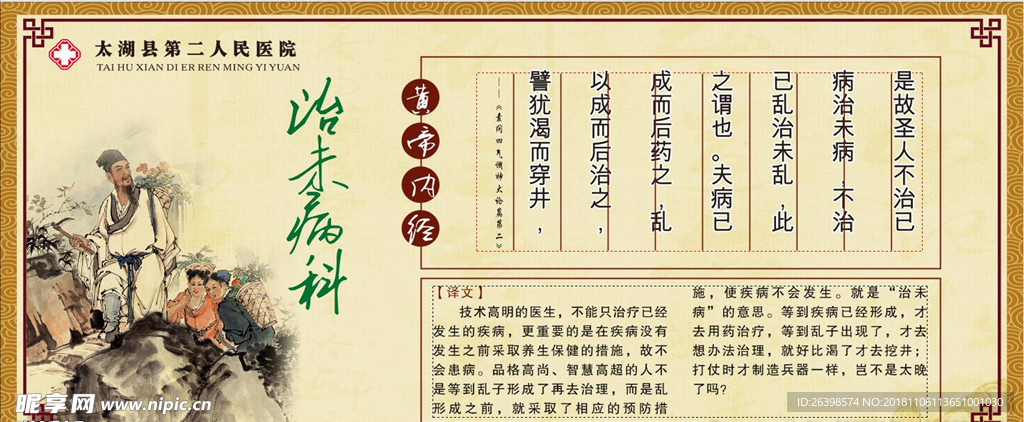 太湖县第二人民医院
TAI HU XIAN DI ER REN MING YI YUAN
治未病科
黄帝内经
是故圣人不治已
病治未病，不治
已乱治未乱，此
之谓也。夫病已
成而后药之，乱
以成而后治之，
譬犹渴而穿井，
——《素问四气调神大论篇第二》
【译文】
技术高明的医生，不能只治疗已经
发生的疾病，更重要的是在疾病没有
发生之前采取养生保健的措施，故不
会患病。品格高尚、智慧高超的人不
是等到乱子形成了再去治理，而是乱
形成之前，就采取了相应的预防措
施，使疾病不会发生。就是“治未
病”的意思。等到疾病已经形成，才
去用药治疗，等到乱子出现了，才去
想办法治理，就好比渴了才去挖井；
打仗时才制造兵器一样，岂不是太晚
了吗？
昵享网 www.nipic.cn
ID:26398574 NO:20181106113651001030